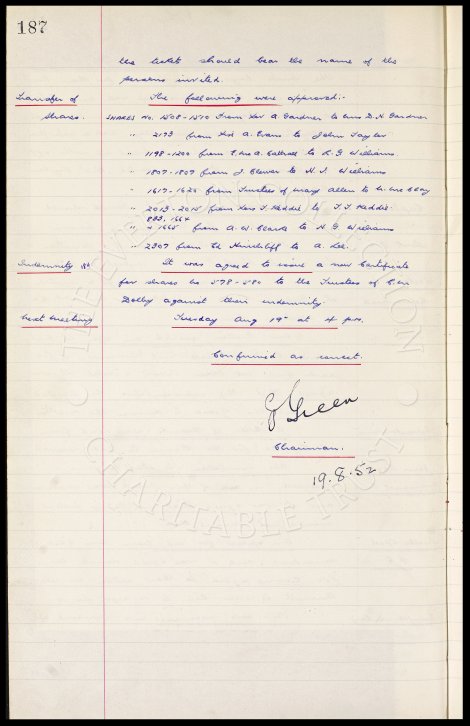 187
the tickets should bear the name of the
persons invited.
Transfer of The following were approved:-
Shares. SHARES No. 1508-1510 from A Gardner to D. H Gardner
" 2173 from A. Evans to John Taylor
" 1198-1200 from to R. G Williams.
" 1807-1807 from J. to H. J. Williams
" 1617-1620 from Trustees of Mary Allen to
" 2013-2015 from T. Keddie to T. J Keddie
883, 1664
" & 1665 from A. W. Clarke to H. G Williams
" 2307 from Hinchliff to A. Lee.
Indemnity It was agreed to issue a new Certificate
for shares No 578-580 to the Trustees of
Dolby against their indemnity.
Next meeting Tuesday Aug 19th at 4 pm.
Confirmed as correct.
G Green
Chairman.
19.8.52
CHARITABLE TRUST